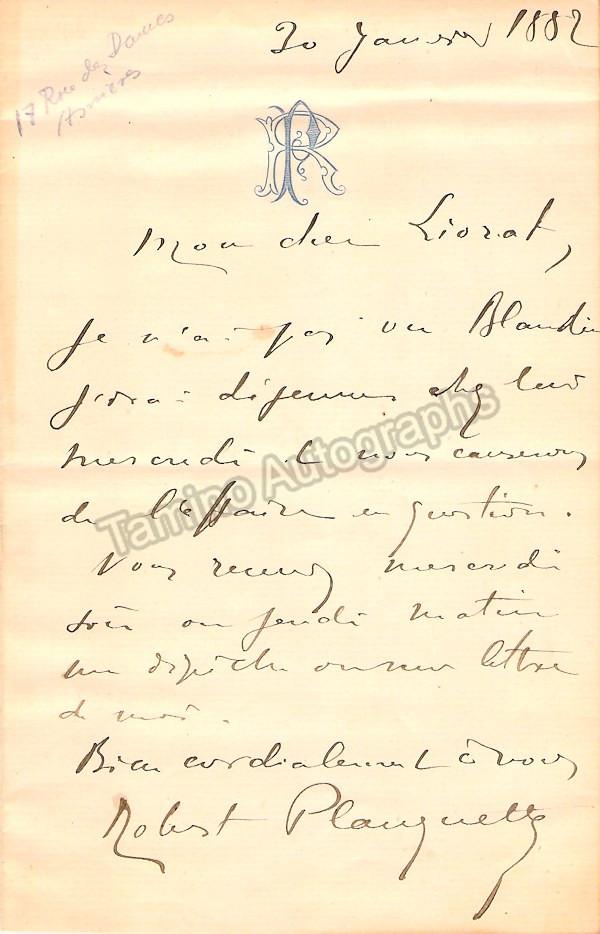 17 Rue des Dames
Asnières
30 Janvier 1882
RP
Mon cher Liorat,
Je n'ai pas vu Blandin
j'irai déjeuner chez lui
mercredi et nous causerons
de l'affaire en question.
Vous recevrez mercredi
soir ou jeudi matin
une dépêche ou une lettre
de moi.
Bien cordialement à vous
Robert Planquette
Tamino Autographs